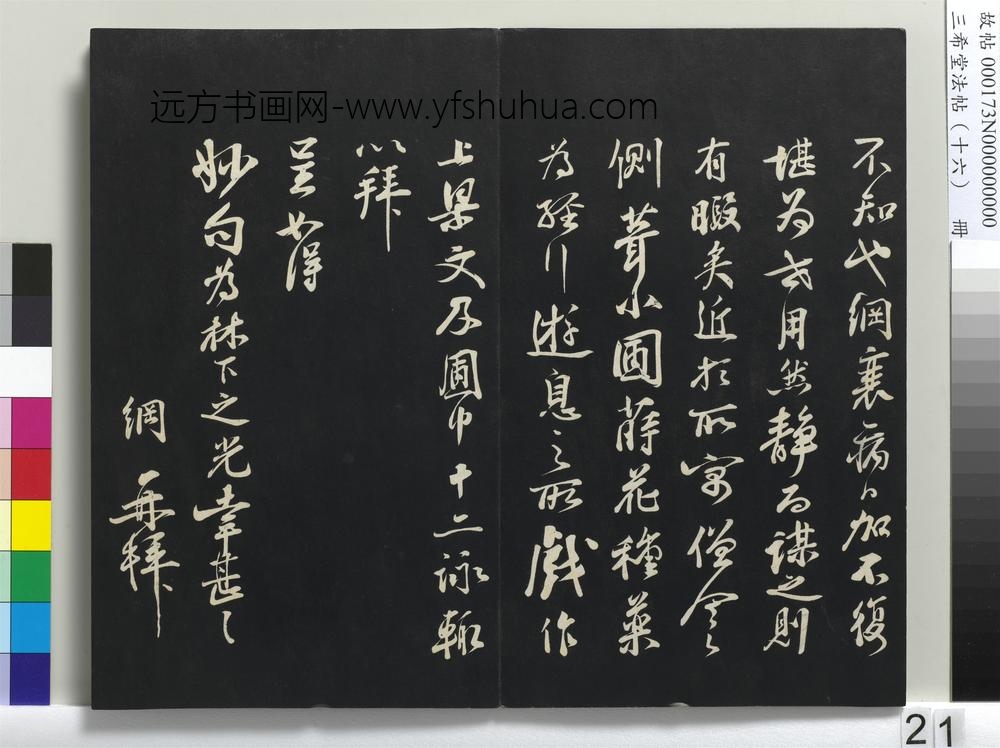 不知也綱衰病日加不復
堪为世用然静而謀之則
有暇矣近於所寓僧舍
側葺小圃蒔花種藥
为經行遊息之所戲作
上梁文及圃中十二詠輒
以拜
呈如得
妙句为林下之光幸甚々
綱 再拜
远方书画网-www.yfshuhua.com
故帖 000173N000000000
三希堂法帖（十六） 冊
21